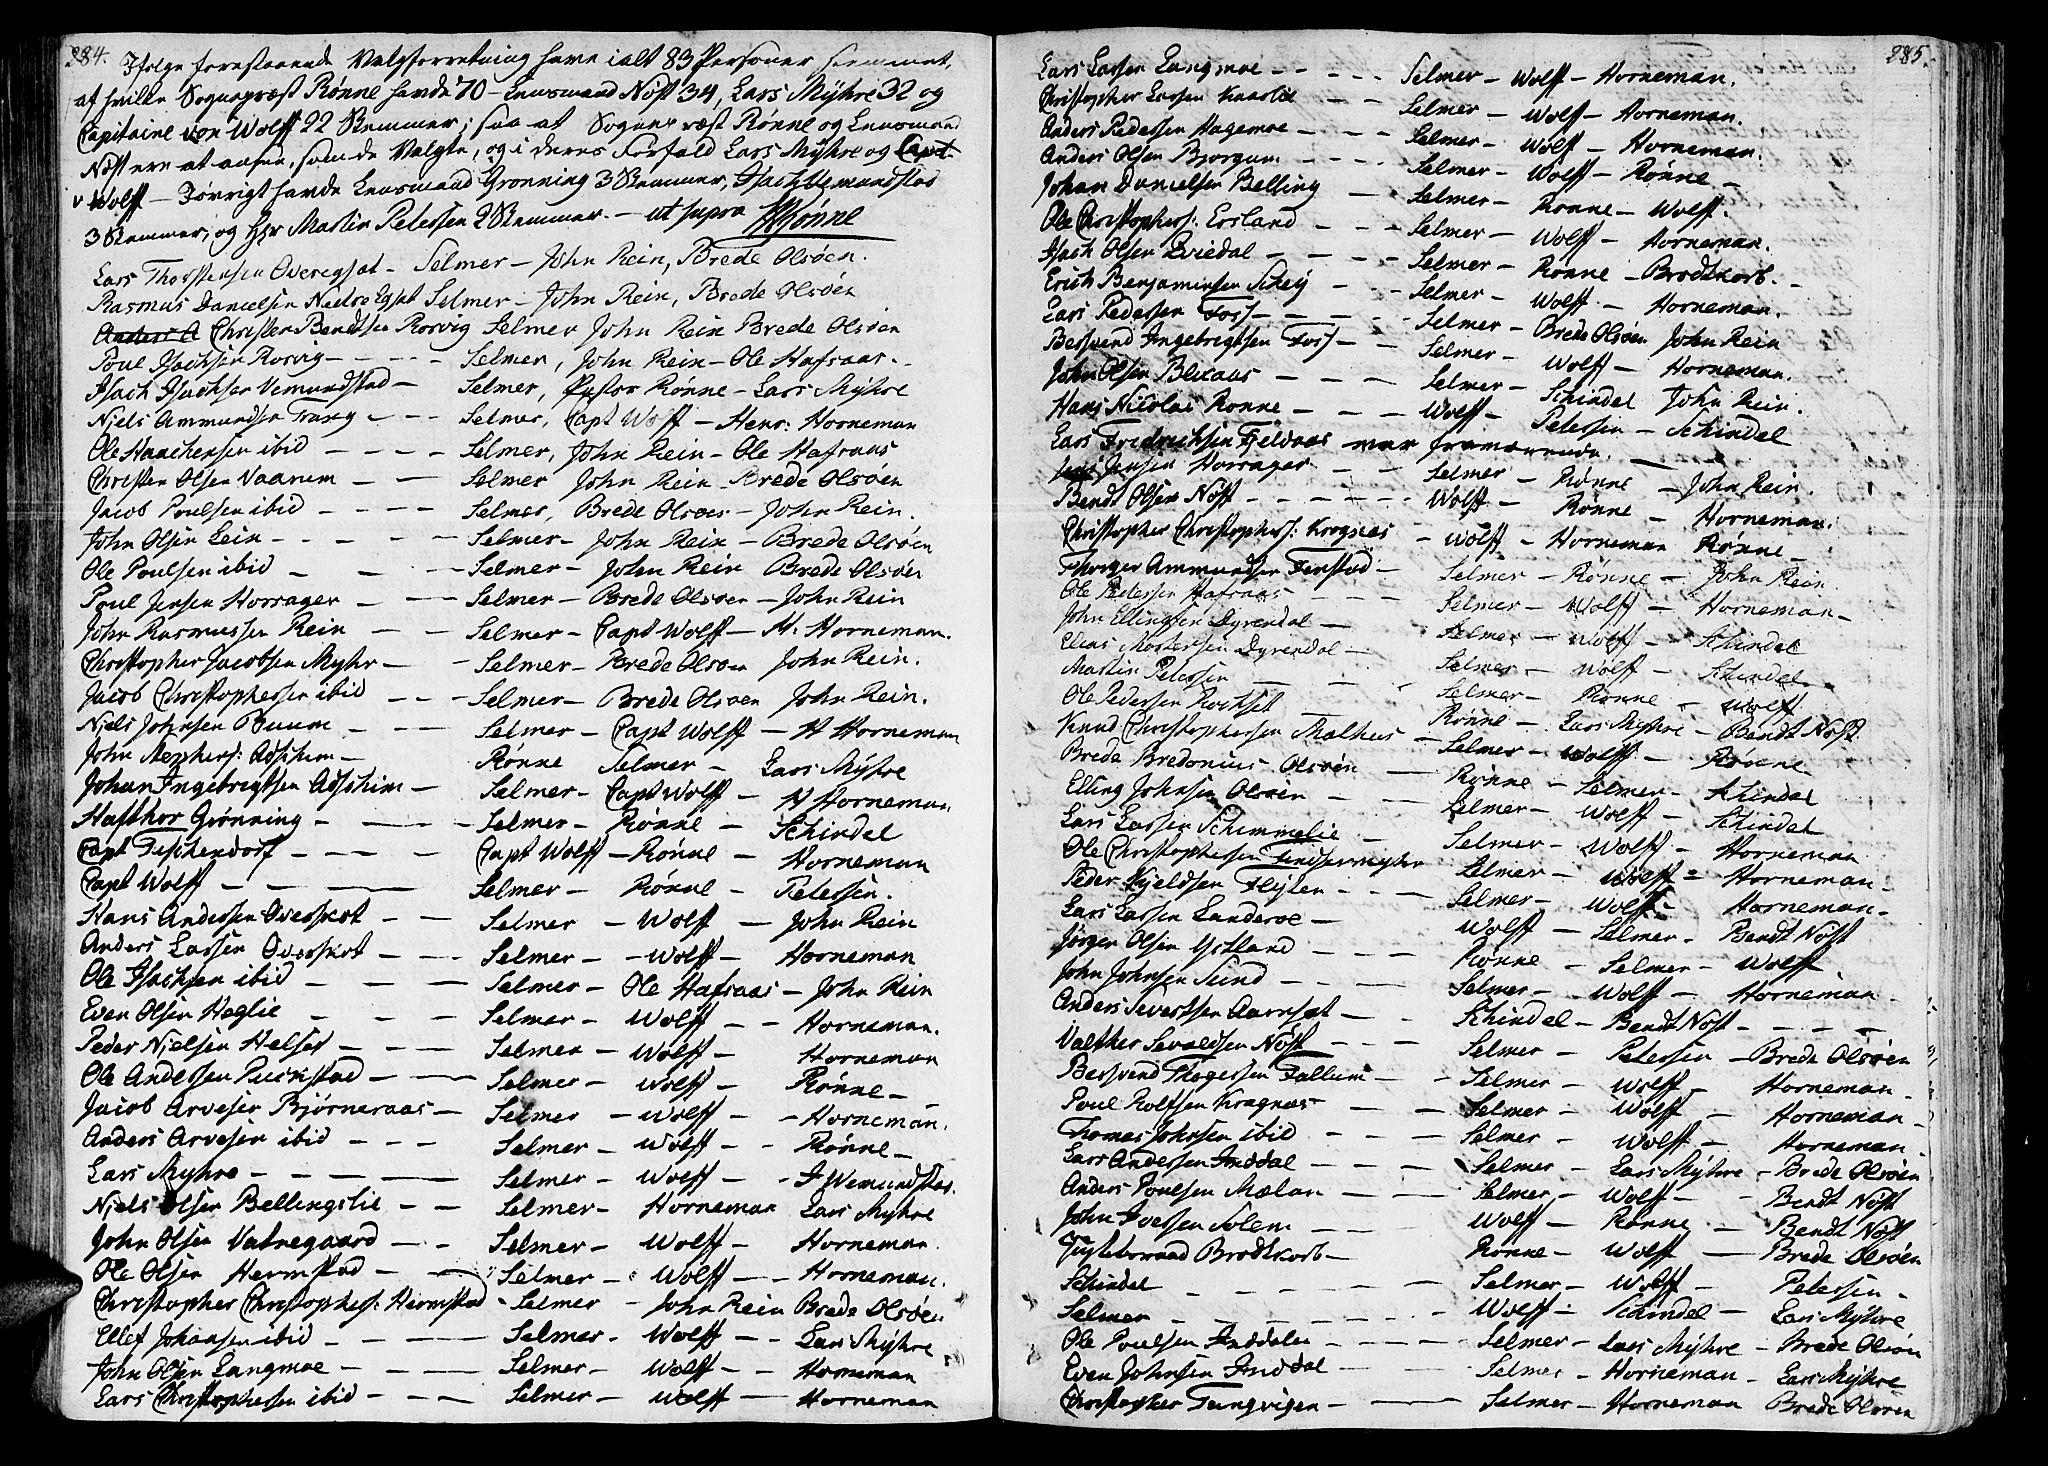 284.
Ifølge foranstaaende Valgforretning have i alt 83 Personer stemmet,
af hvilke Sognepræst Rønne havde 70 - Lensmand Nøst 34, Lars Myhre 32 og
Capitaine von Wolff 22 Stemmer; saa at Sognepræst Rønne og Lensmand
Nøst ere at ansee, som de Valgte, og i deres Forfald Lars Myhre og Capt.
v Wolff - Iøvrigt havde Lensmand Grønning 3 Stemmer, Isach Vemundstad
3 Stemmer, og Hr Martin Petersen 2 Stemmer. - ut supra Rønne
Lars Thorstensen Overegsat - Selmer - John Rein, Brede Olsøen.
Rasmus Danielsen Nedre Egsat Selmer - John Rein, Brede Olsøen
Christen Bendtsen Rorvig Selmer John Rein Brede Olsøen
Poul Isachsen Rorvig - Selmer, John Rein - Ole Hafsaas.
Isach Isachsen Vemundstad - Selmer, Pastor Rønne - Lars Myhre
Niels Ammundsen - Selmer, Capt Wolff - Henr: Horneman
Ole Haachensen ibid - Selmer, John Rein - Ole Hafsaas
Christen Olsen Vaanum - Selmer John Rein Brede Olsøen
Jacob Poulsen ibid - Selmer, Brede Olsøen - John Rein.
John Olsen Lein - Selmer - John Rein - Brede Olsøen
Ole Poulsen ibid - Selmer - John Rein Brede Olsøen
Poul Jensen Horrager - Selmer - Brede Olsøen - John Rein
John Rasmussen Rein - Selmer - Capt Wolff - H. Horneman.
Christopher Jacobsen Myhr - Selmer - Brede Olsøen John Rein.
Jacob Christophersen ibid - Selmer - Brede Olsøen John Rein.
Niels Johnsen Buum - Selmer - Capt Wolff - H Horneman
John - Rønne Selmer - Lars Myhre
Johan Ingebrigtsen - Selmer - Capt Wolff - H Horneman
Hafthor Grønning - Selmer - Rønne - Schindel
Capt Tischendorf - Capt Wolff - Rønne - Horneman
Capt Wolff - Selmer - Rønne - Petersen.
Hans Andersen Overskot - Selmer - Wolff - John Rein
Anders Larsen Overskot - Selmer - Wolff - Horneman
Ole Isachsen ibid - Selmer - Ole Hafsaas - John Rein
Even Olsen Heglie - Selmer - Wolff - Horneman.
Peder Nielsen Helset - Selmer - Wolff - Horneman
Ole Andersen Puckstad - Selmer - Wolff - Rønne -
Jacob Arvesen Bjørneraas - Selmer - Wolff - Horneman.
Anders Arvesen ibid - Selmer - Wolff - Rønne -
Lars Myhre - Selmer - Wolff - I Wemundstad.
Niels Olsen Bellingslie - Selmer - Horneman Lars Myhre
John Olsen Vatnegaard - Selmer - Wolff - Horneman.
Ole Olsen Hermstad - Selmer - Wolff - Horneman.
Christopher Christophers: Hermstad - Selmer - John Rein Brede Olsøen
Ellef Johansen ibid - Selmer - Wolff - Lars Myhre
John Olsen Langmoe - Selmer - Wolff - Horneman
Lars Christophersen ibid - Selmer - Wolff - Horneman
285.
Lars Larsen Langmoe - Selmer - Wolff - Horneman.
Christopher Larsen - Selmer - Wolff - Horneman.
Anders Pedersen Hagemoe - Selmer - Wolff - Horneman.
Anders Olsen Bjorgum - Selmer - Wolff - Rønne -
Johan Danielsen Belling - Selmer - Rønne - Wolff.
Ole Christophers: Ersland - Selmer - Wolff - Horneman.
Isach Olsen - Selmer - Rønne - Brodtkorb.
Erich Benjaminsen Schey - Selmer - Wolff - Horneman.
Lars Pedersen Foss - Selmer - Brede Olsøen John Rein
Bersvend Ingebrigtsen Foss - Selmer - Wolff - Horneman.
John Olsen Blixaas - Selmer - Schindel John Rein.
Hans Nicolai Rønne - Wolff - Petersen - Schindel
Lars Fredrichsen Fjeldaas var fraværende.
Jensen Horrager - Selmer - Rønne - John Rein.
Bendt Olsen Nøst - Wolff - Rønne - Horneman.
Christopher Christophers: Krognæs - Wolff - Horneman Rønne -
Thorger Ammundsen Finstad - Selmer - Rønne - John Rein.
Ole Petersen Hafsaas - Selmer - Wolff - Horneman -
John Ellingsen Dyrendal - Selmer - Wolff - Schindel
Elias Mortensen Dyrendal - Selmer - Wolff - Schindel
Martin Petersen - Selmer - Rønne - Wolff
Ole Pedersen Rochset - Rønne - Lars Myhre - Bendt Nøst
Knud Christophersen Mælhus - Selmer - Wolff - Rønne
Brede Bredonius Olsøen - Rønne - Selmer - Schindel
Elling Johnsen Olsøen - Selmer - Wolff - Schindel
Lars Larsen Schimmelie - Selmer - Wolff - Horneman
Ole Christophersen - Selmer - Wolff - Horneman -
Peder Kjeldsen Flyten - Selmer - Wolff - Horneman -
Lars Larsen Landeroe - Wolff - Selmer - Bendt Nøst
Jørgen Olsen Ystland - Rønne - Selmer - Wolff
John Johnsen Sund - Selmer - Wolff - Horneman -
Anders Sivertsen Aarnset - Schindel - Bendt Nøst -
Valther Sevaldsen Nøst - Selmer - Petersen - Brede Olsøen
Bersvend Thogersen Fallum - Selmer - Wolff - Horneman -
Poul Rolfsen Kragnæs - Selmer - Wolff - Horneman -
Thomas Johnsen ibid - Selmer - Wolff - Horneman -
Lars Andersen Inddal - Selmer - Lars Myhre - Brede Olsøen
Anders Poulsen Mælan - Selmer - Wolff - Bendt Nøst
John Iversen Solem - Wolff - Rønne - Bendt Nøst
Brodtkorb - Rønne - Wolff - Brede Olsøen
Schindel - Selmer - Wolff - Petersen -
Selmer - Wolff - Schindel - Lars Myhre
Ole Poulsen Inddalen - Selmer - Lars Myhre - Brede Olsøen
Even Johnsen Inddal - Selmer - Horneman - Lars Myhre
Christopher Tungvigen - Selmer - Horneman Brede Olsøen